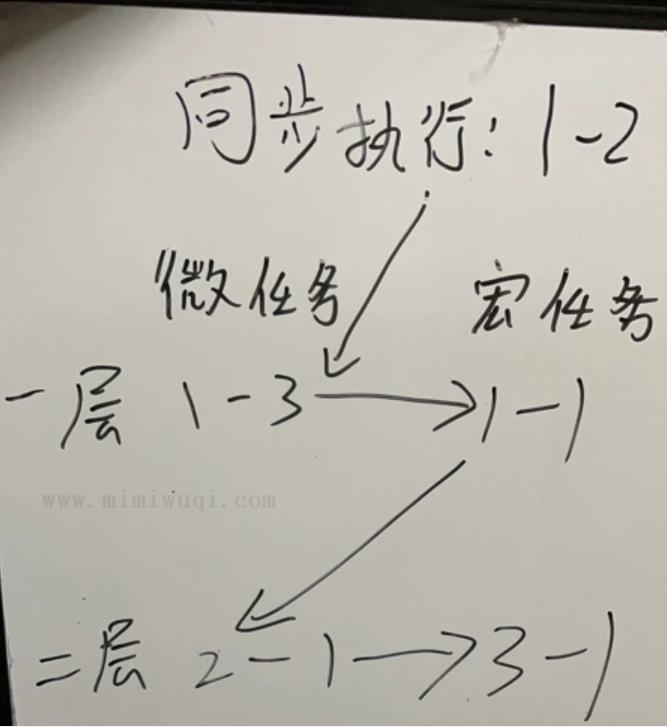 同步执行: 1-2
微任务 宏任务
一层 1-3 → 1-1
www.mimiwuqi.com
二层 2-1 → 3-1